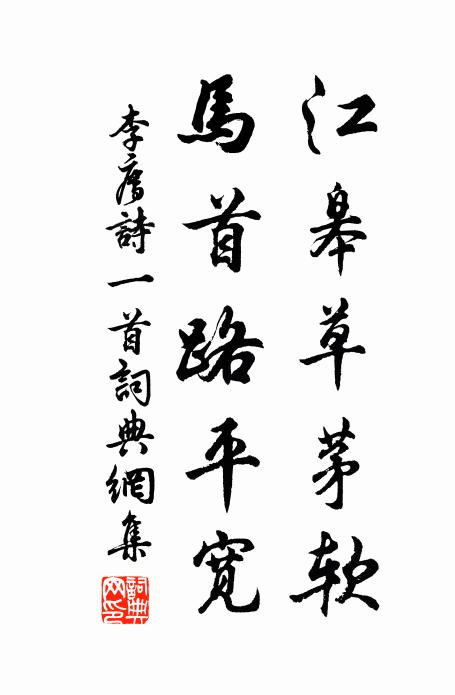 江皋草茅軟
馬首路平寬
李廌詩一首詞典網集
詞典网印